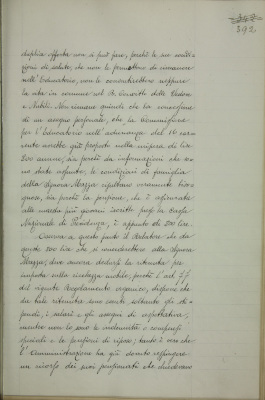 392
duplice offerta non si può fare, perchè le sue condi-
zioni di salute, che non le permettono di rimanere
nell'Educatorio, non le consentirebbero neppure
la vita in comune nel R. Ritiro delle Vedove
e Nubili. Non rimane quindi che la concessione
di un assegno personale, che la Commissione
per l'Educatorio nell'adunanza del 16 cor-
rente avrebbe già proposto nella misura di lire
300 annue, sia perchè da informazioni che so-
no state assunte, le condizioni di famiglia
della Signora Mazza risultano veramente biso-
gnose, sia perchè la pensione, che è assicurata
alle maestre più giovani inscritte presso la Cassa
Nazionale di Previdenza, è appunto di 300 lire.
Osserva a questo punto il Relatore che da
queste 300 lire che si concederebbero alla Signora
Mazza, deve ancora dedursi la ritenuta per
imposta sulla ricchezza mobile, perchè l'art. 77
del vigente Regolamento organico, dispone che
da tale ritenuta sono esenti soltanto gli sti-
pendi, i salari e gli assegni di aspettativa,
mentre non lo sono le indennità e compensi
speciali e le pensioni di riposo; tanto è vero che
l'Amministrazione ha già dovuto respingere
un ricorso dei suoi pensionati che chiedevano